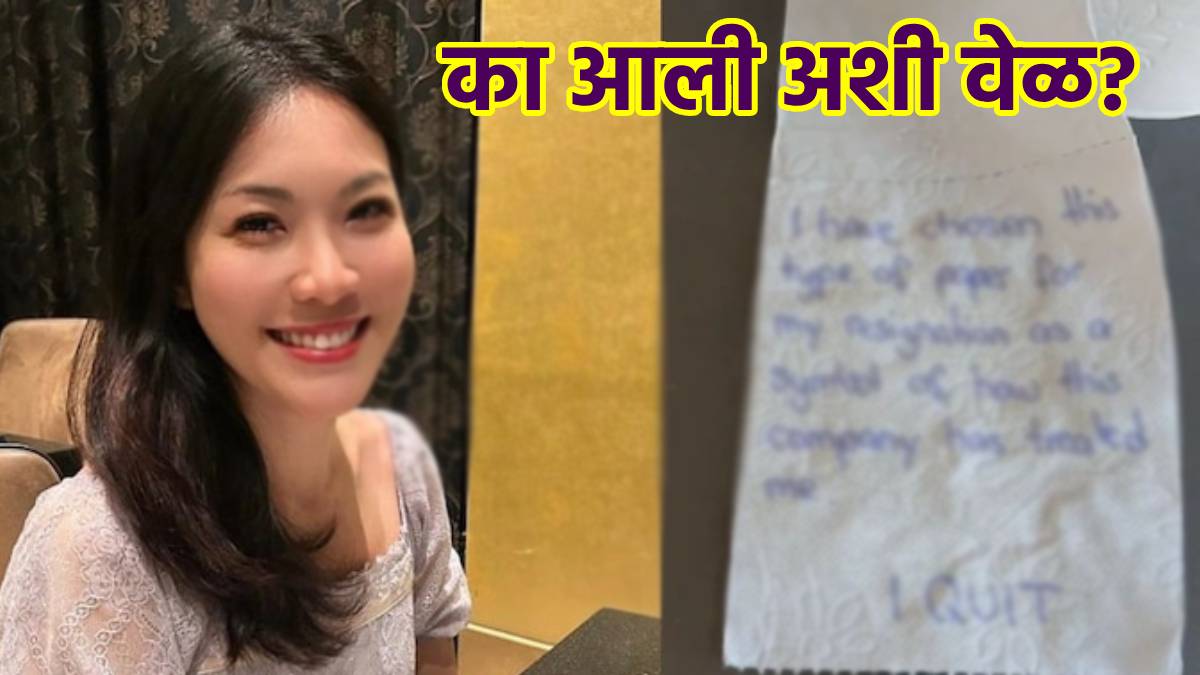 का आली अशी वेळ?
I have chosen this
type of paper for
my resignation as a
symbol of how this
company has treated
me
I QUIT